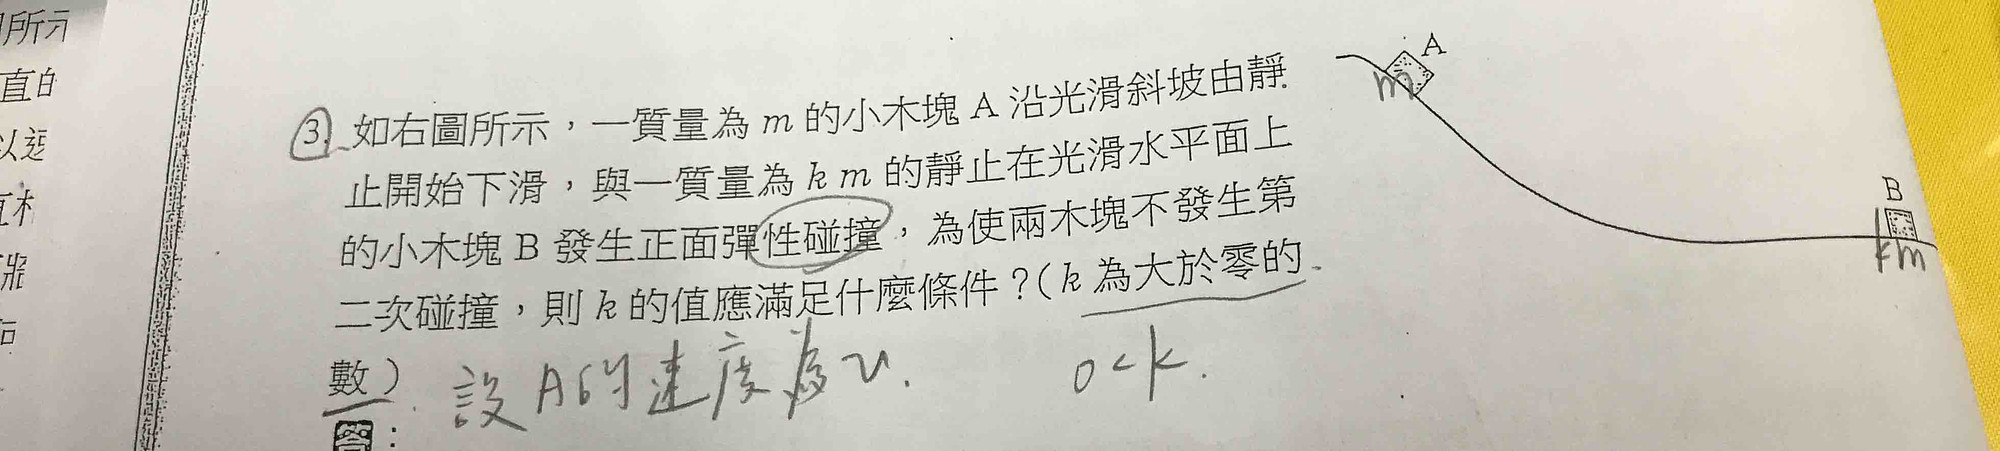 所示
直的
以速
③ 如右圖所示，一質量為 m 的小木塊 A 沿光滑斜坡由靜
止開始下滑，與一質量為 k m 的靜止在光滑水平面上
的小木塊 B 發生正面彈性碰撞，為使兩木塊不發生第
二次碰撞，則 k 的值應滿足什麼條件？( k 為大於零的
數 )
設 A 的速度為 v.
0<k.
答：
A
m
B
km